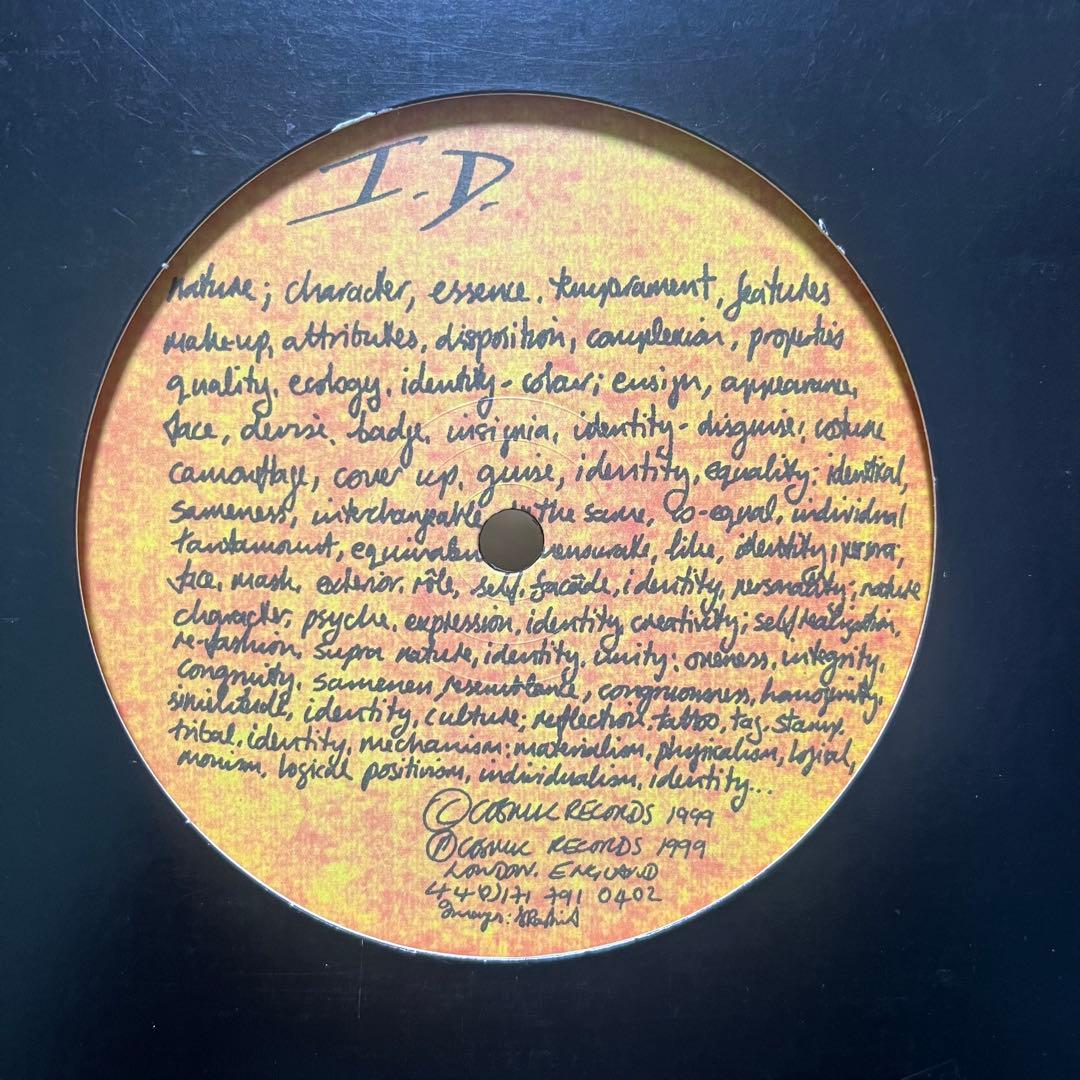 I.D.
nature; character, essence. temperament, features
make-up, attributes, disposition, complexion, properties
quality, ecology, identity - colour; ensign, appearance,
face, devise, badge, insignia, identity - disguise; costume
camouflage, cover up, guise, identity, equality; identical,
sameness, interchangeable the same, co-equal, individual
tantamount, like, identity;
face, mask, exterior, rôle, self, facade, identity, personality; nature
character, psyche, expression, identity creativity; self realization,
re-fashion, supra nature, identity, unity: oneness, integrity,
congruity, sameness resemblance, congruousness,
identity, culture; reflection, tattoo, tag, stamp,
tribal, identity, mechanism: materialism, physicalism, logical,
monism, logical positivism, individualism, identity...
© COSMIC RECORDS 1999
℗ COSMIC RECORDS 1999
LONDON. ENGLAND
44 (0)171 791 0402